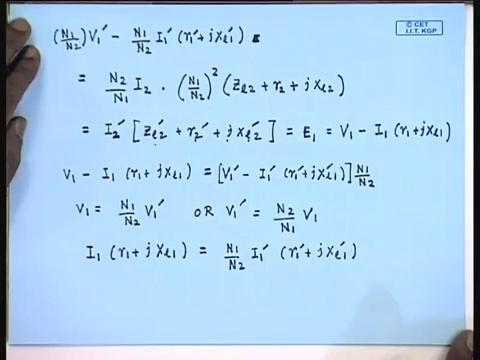 © CET
I.I.T. KGP
(N1/N2) V1′ − N1/N2 I1′ (r1′ + jxl1′)
= N2/N1 I2 . (N1/N2)² (Zl2 + r2 + jxl2)
= I2′ [Zl2′ + r2′ + jxl2′] = E1 = V1 − I1 (r1 + jxl1)
V1 − I1 (r1 + jxl1) = [V1′ − I1′ (r1′ + jxl1′)] N1/N2
V1 = N1/N2 V1′ OR V1′ = N2/N1 V1
I1 (r1 + jxl1) = N1/N2 I1′ (r1′ + jxl1′)